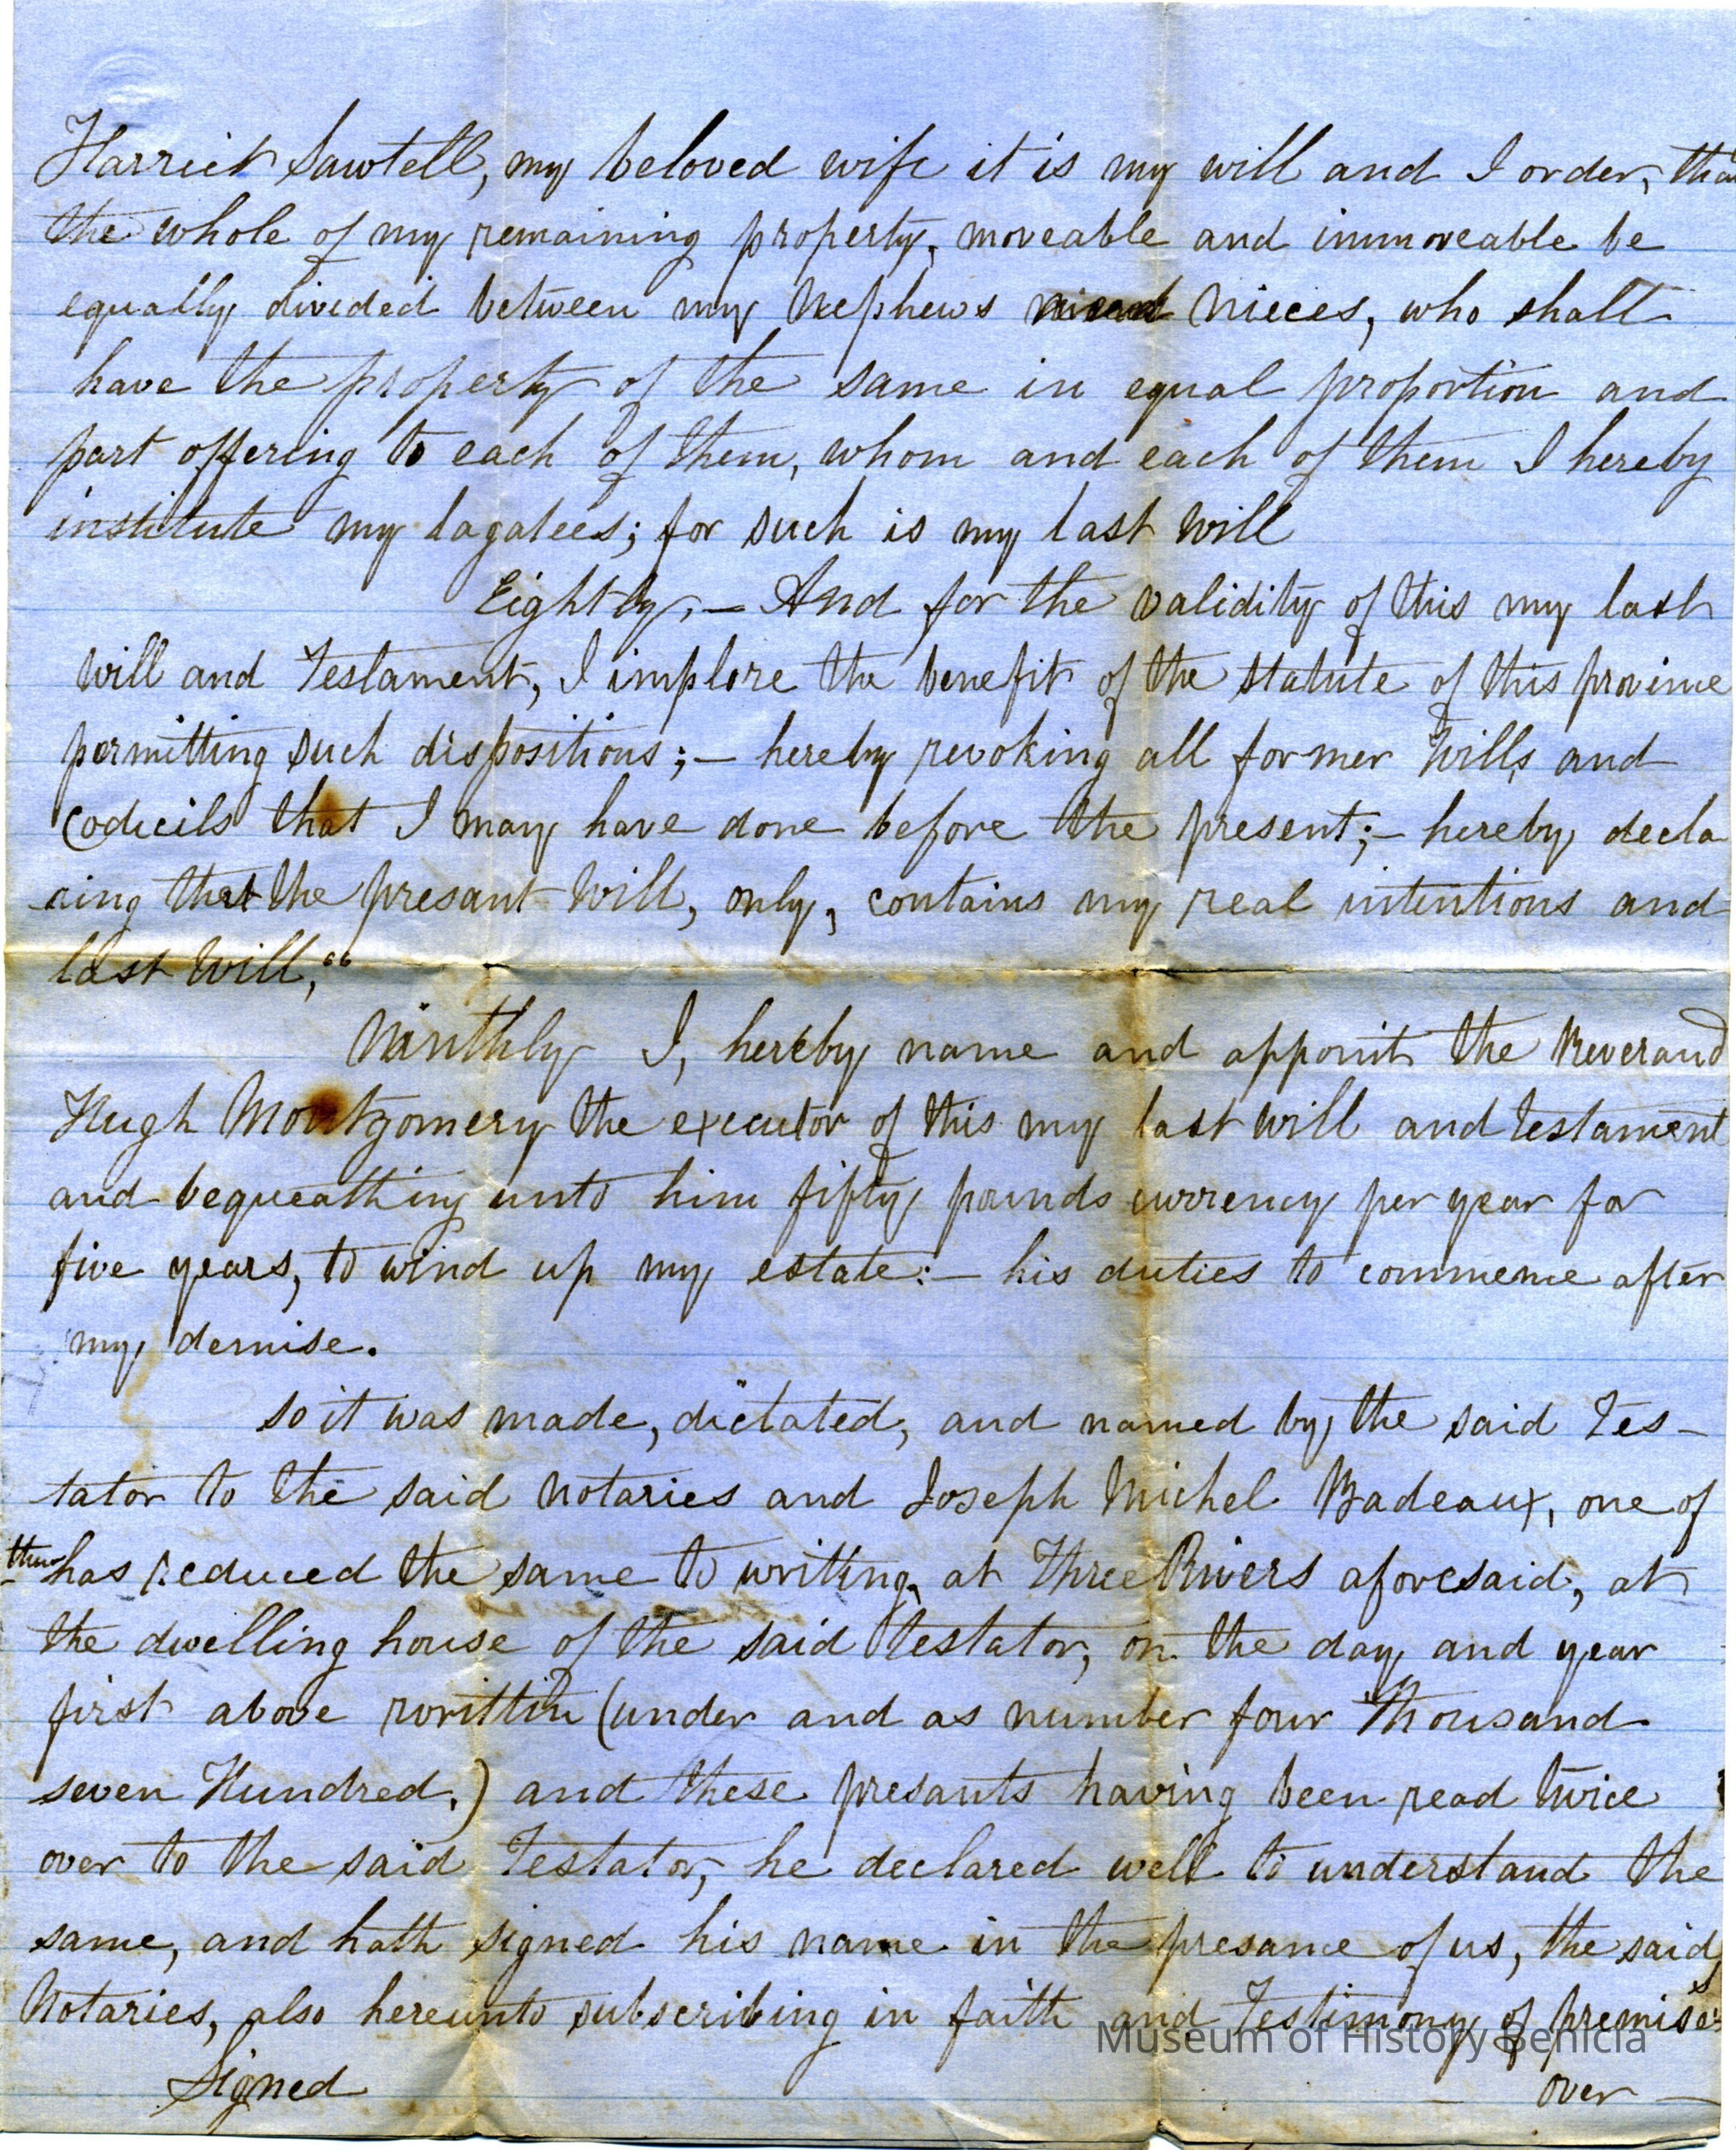 Harriet Sawtell, my beloved wife it is my will and I order, that
the whole of my remaining property, moveable and immoveable be
equally divided between my Nephews nieces, who shall
have the property of the same in equal proportion and
part offering to each of them, whom and each of them I hereby
institute my lagatees; for such is my last will
Eightly, – And for the validity of this my last
will and Testament, I implore the benefit of the statute of this province
permitting such dispositions; – hereby revoking all former Wills and
Codicils that I may have done before the present; – hereby decla
ring that the presant Will, only, contains my real intentions and
last Will, "
Ninthly I, hereby name and appoint the Reverand
Hugh Montgomery the executor of this my last will and testament
and bequeathing unto him fifty pounds currency per year for
five years, to wind up my estate: – his duties to commence after
my demise.
So it was made, dictated, and named by the said Tes–
tator to the said Notaries and Joseph Michel Badeaux, one of
them has reduced the same to writting, at Three Rivers aforesaid, at
the dwelling house of the said Testator, on the day and year
first above writtin (under and as number four Thousand
seven Hundred.) and these presants having been read twice
over to the said Testator, he declared well to understand the
same, and hath signed his name in the presance of us, the said
Notaries, also hereunto subscribing in faith and Testimony of premises
Signed
– over –
Museum of History Benicia